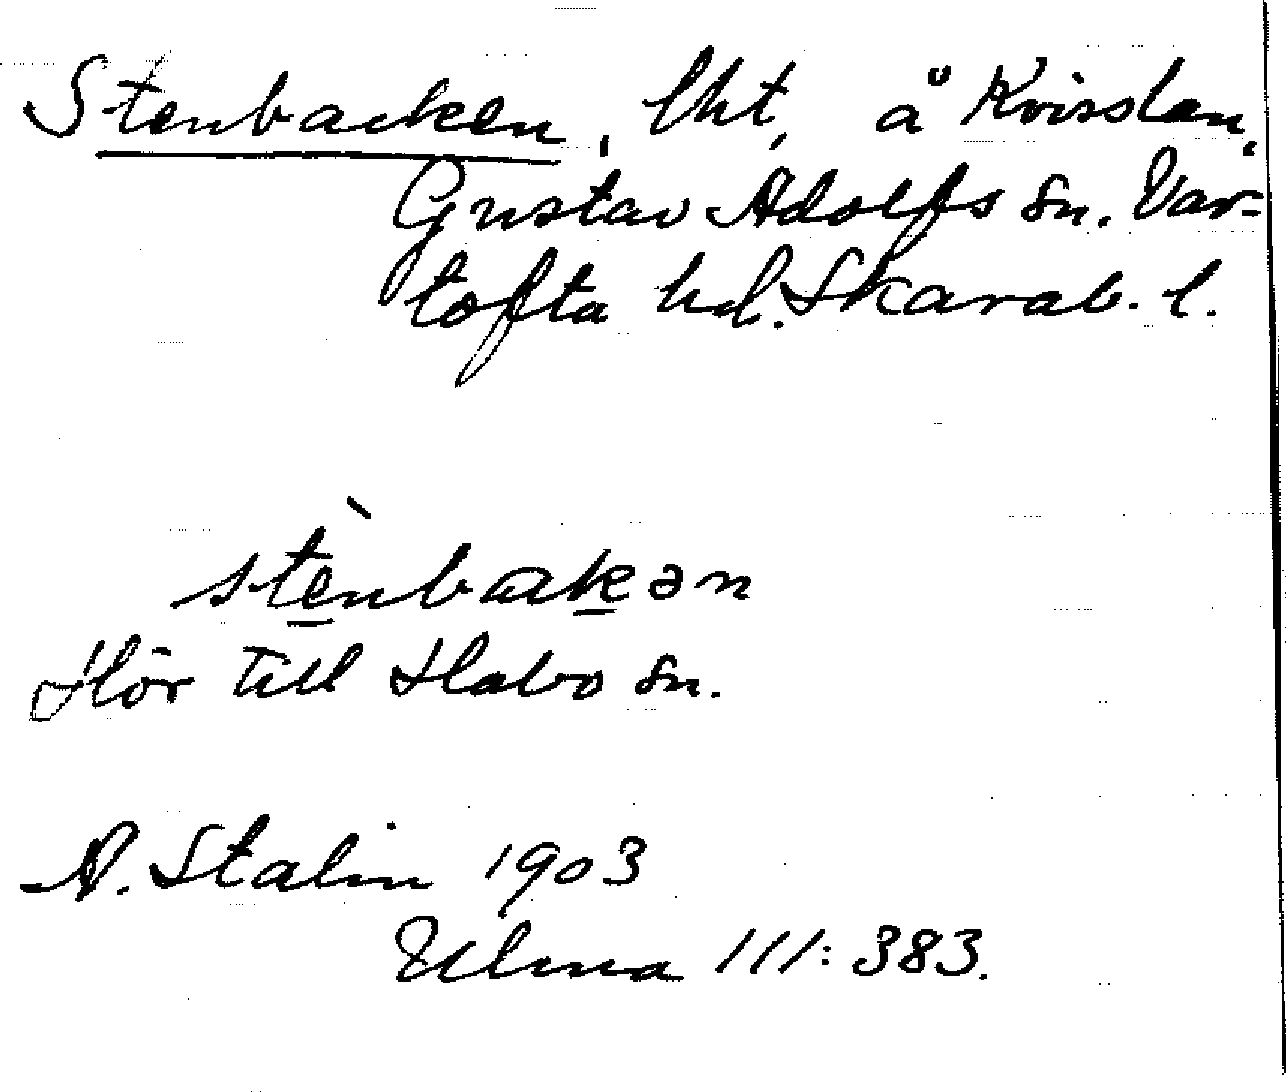 Stenbacken, lht, å Kvisslan,
Gustav Adolfs sn. Var-
tofta hd. Skarab. l.
stènbakən
Hör till Habo sn.
A. Stalin 1903
Ulma 111:383.